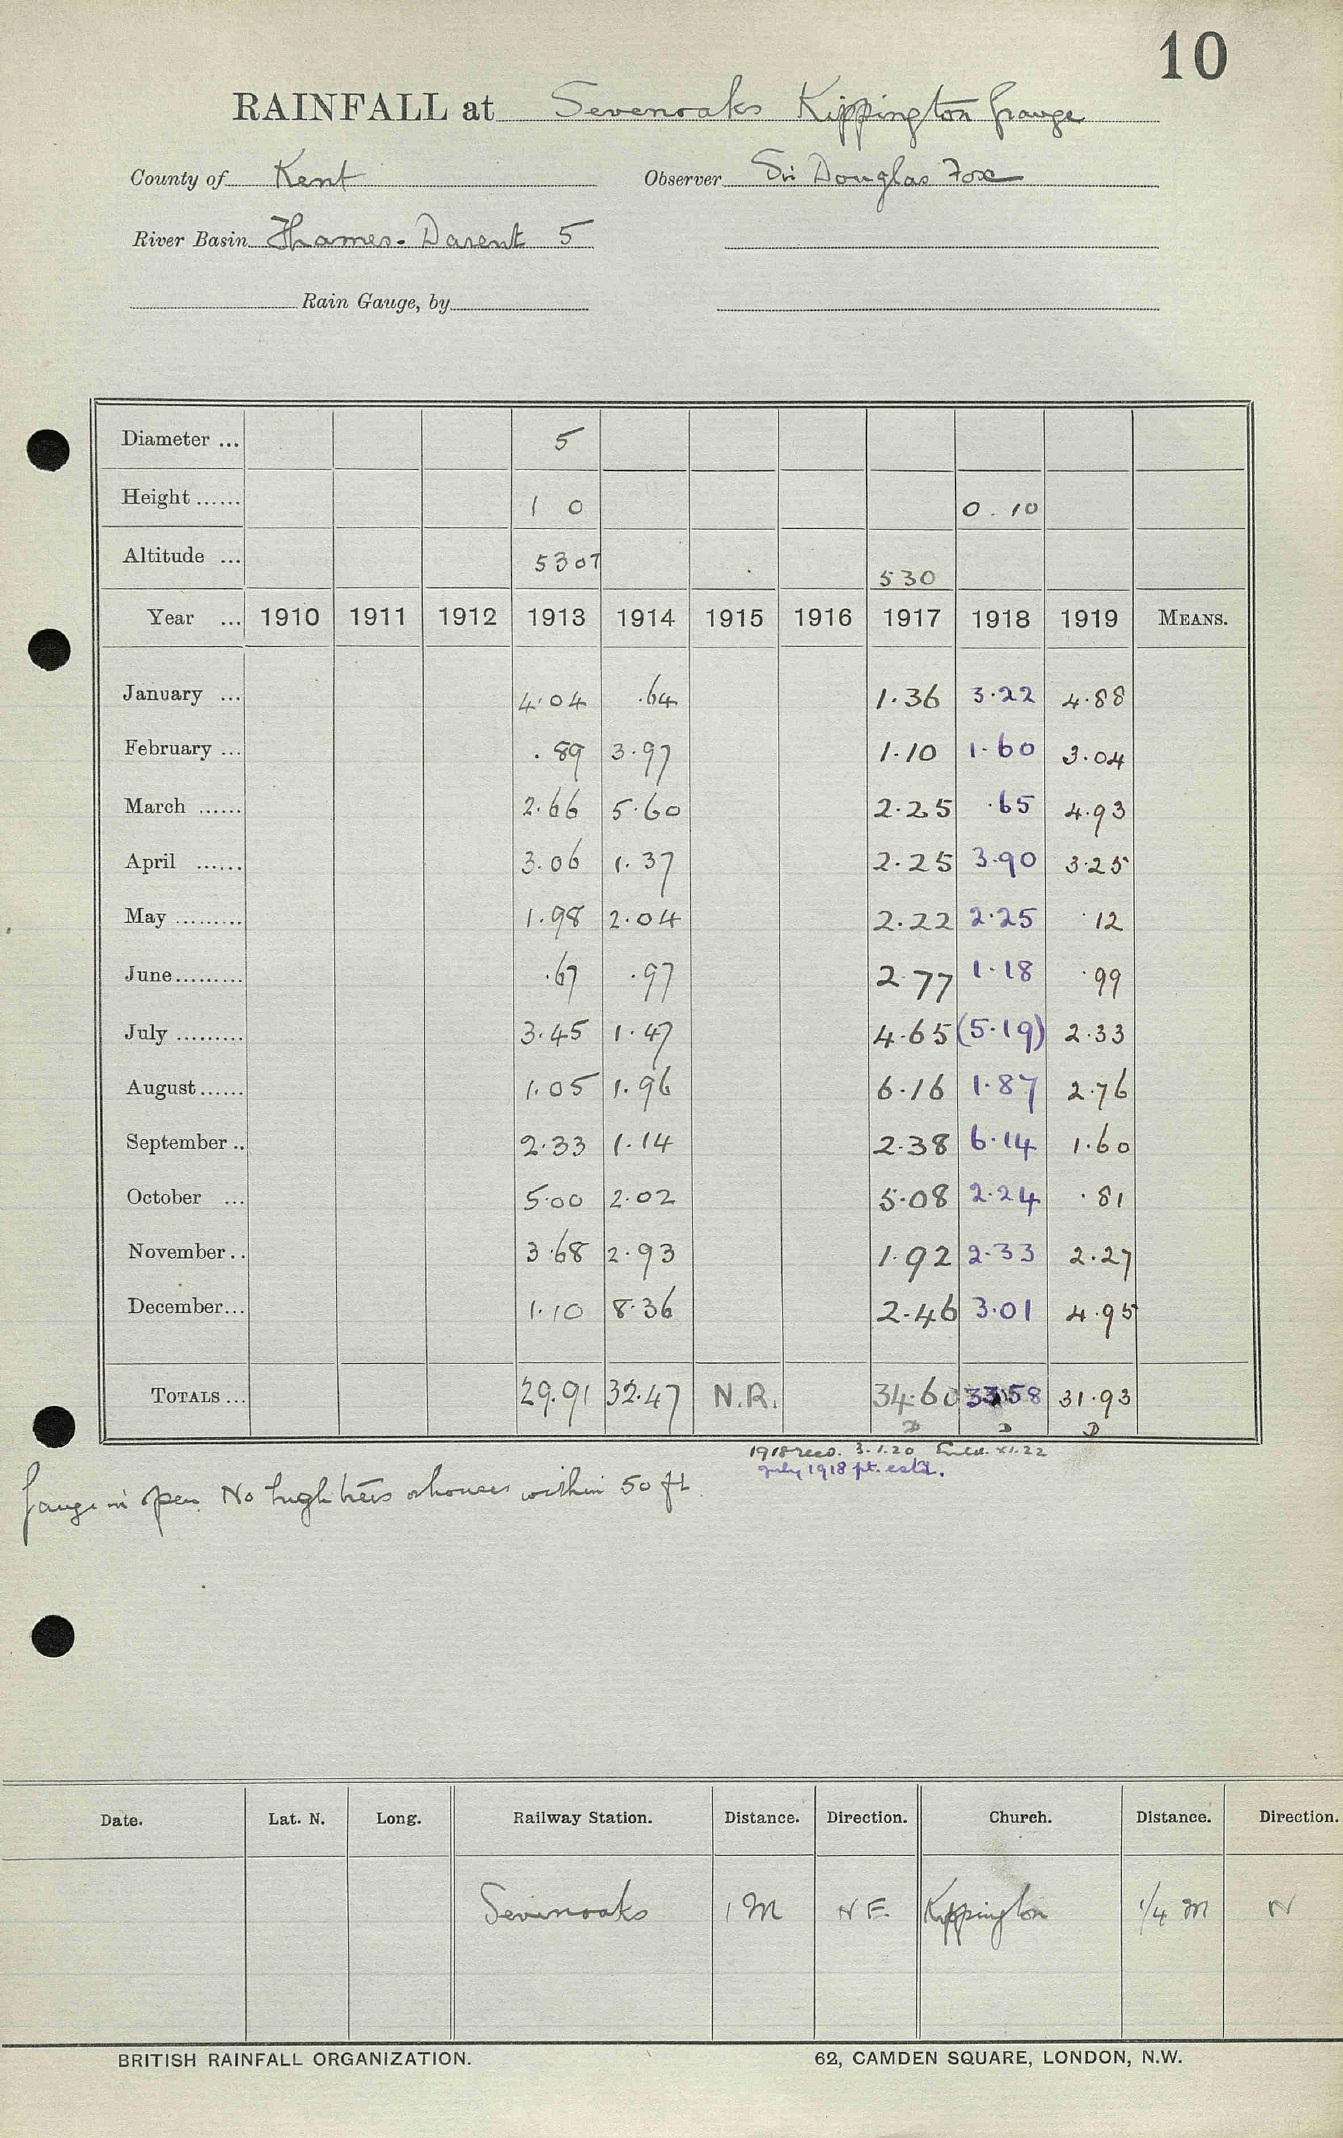 10
RAINFALL at Sevenoaks Kippington Grange
County of Kent Observer Sir Douglas Fox
River Basin Thames - Darent 5
Rain Gauge, by
Diameter ... 5
Height ...... 1 0 0.10
Altitude ... 530T 530
Year ... 1910 1911 1912 1913 1914 1915 1916 1917 1918 1919 MEANS.
January ... 4.04 .64 1.36 3.22 4.88
February ... .89 3.97 1.10 1.60 3.04
March ...... 2.66 5.60 2.25 .65 4.93
April ...... 3.06 1.37 2.25 3.90 3.25
May ......... 1.98 2.04 2.22 2.25 .12
June......... .67 .97 2.77 1.18 .99
July ......... 3.45 1.47 4.65 (5.19) 2.33
August...... 1.05 1.96 6.16 1.87 2.76
September .. 2.33 1.14 2.38 6.14 1.60
October ... 5.00 2.02 5.08 2.24 .81
November .. 3.68 2.93 1.92 2.33 2.27
December... 1.10 8.36 2.46 3.01 4.95
TOTALS ... 29.91 32.47 N.R. 34.60 33.58 31.93
D D D
1918 recd. 3.1.20 XI.22
July 1918 pt. estd.
Gauge in open. No high trees or houses within 50 ft.
Date. Lat. N. Long. Railway Station. Distance. Direction. Church. Distance. Direction.
Sevenoaks 1 M N E. Kippington 1/4 M N
BRITISH RAINFALL ORGANIZATION. 62, CAMDEN SQUARE, LONDON, N.W.